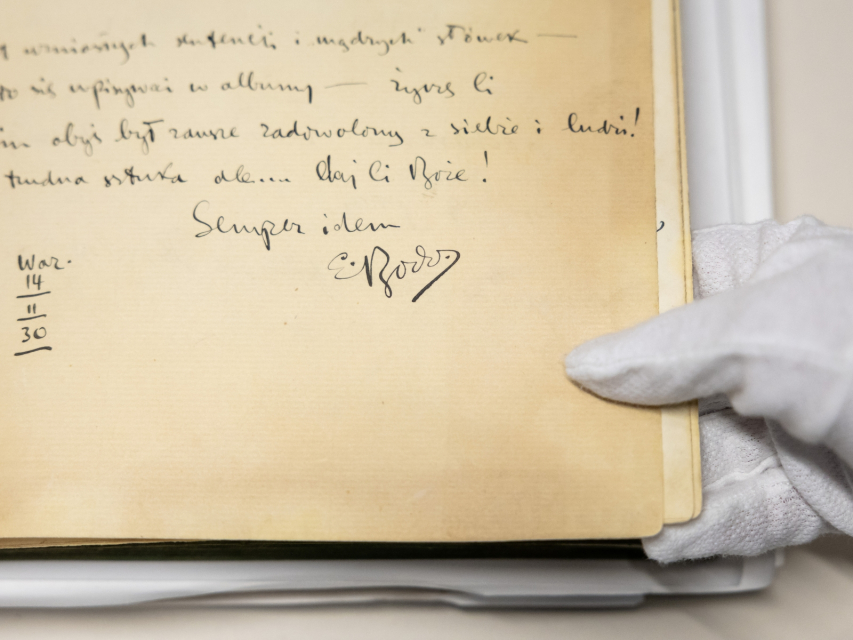 wzniosłych sentencji i mądrych słówek —
się wpisywać w albumy — życzę Ci
abyś był zawsze zadowolony z siebie i ludzi!
trudna sztuka ale.... Daj Ci Boże!
Semper idem
E. Bodo.
War.
14
11
30